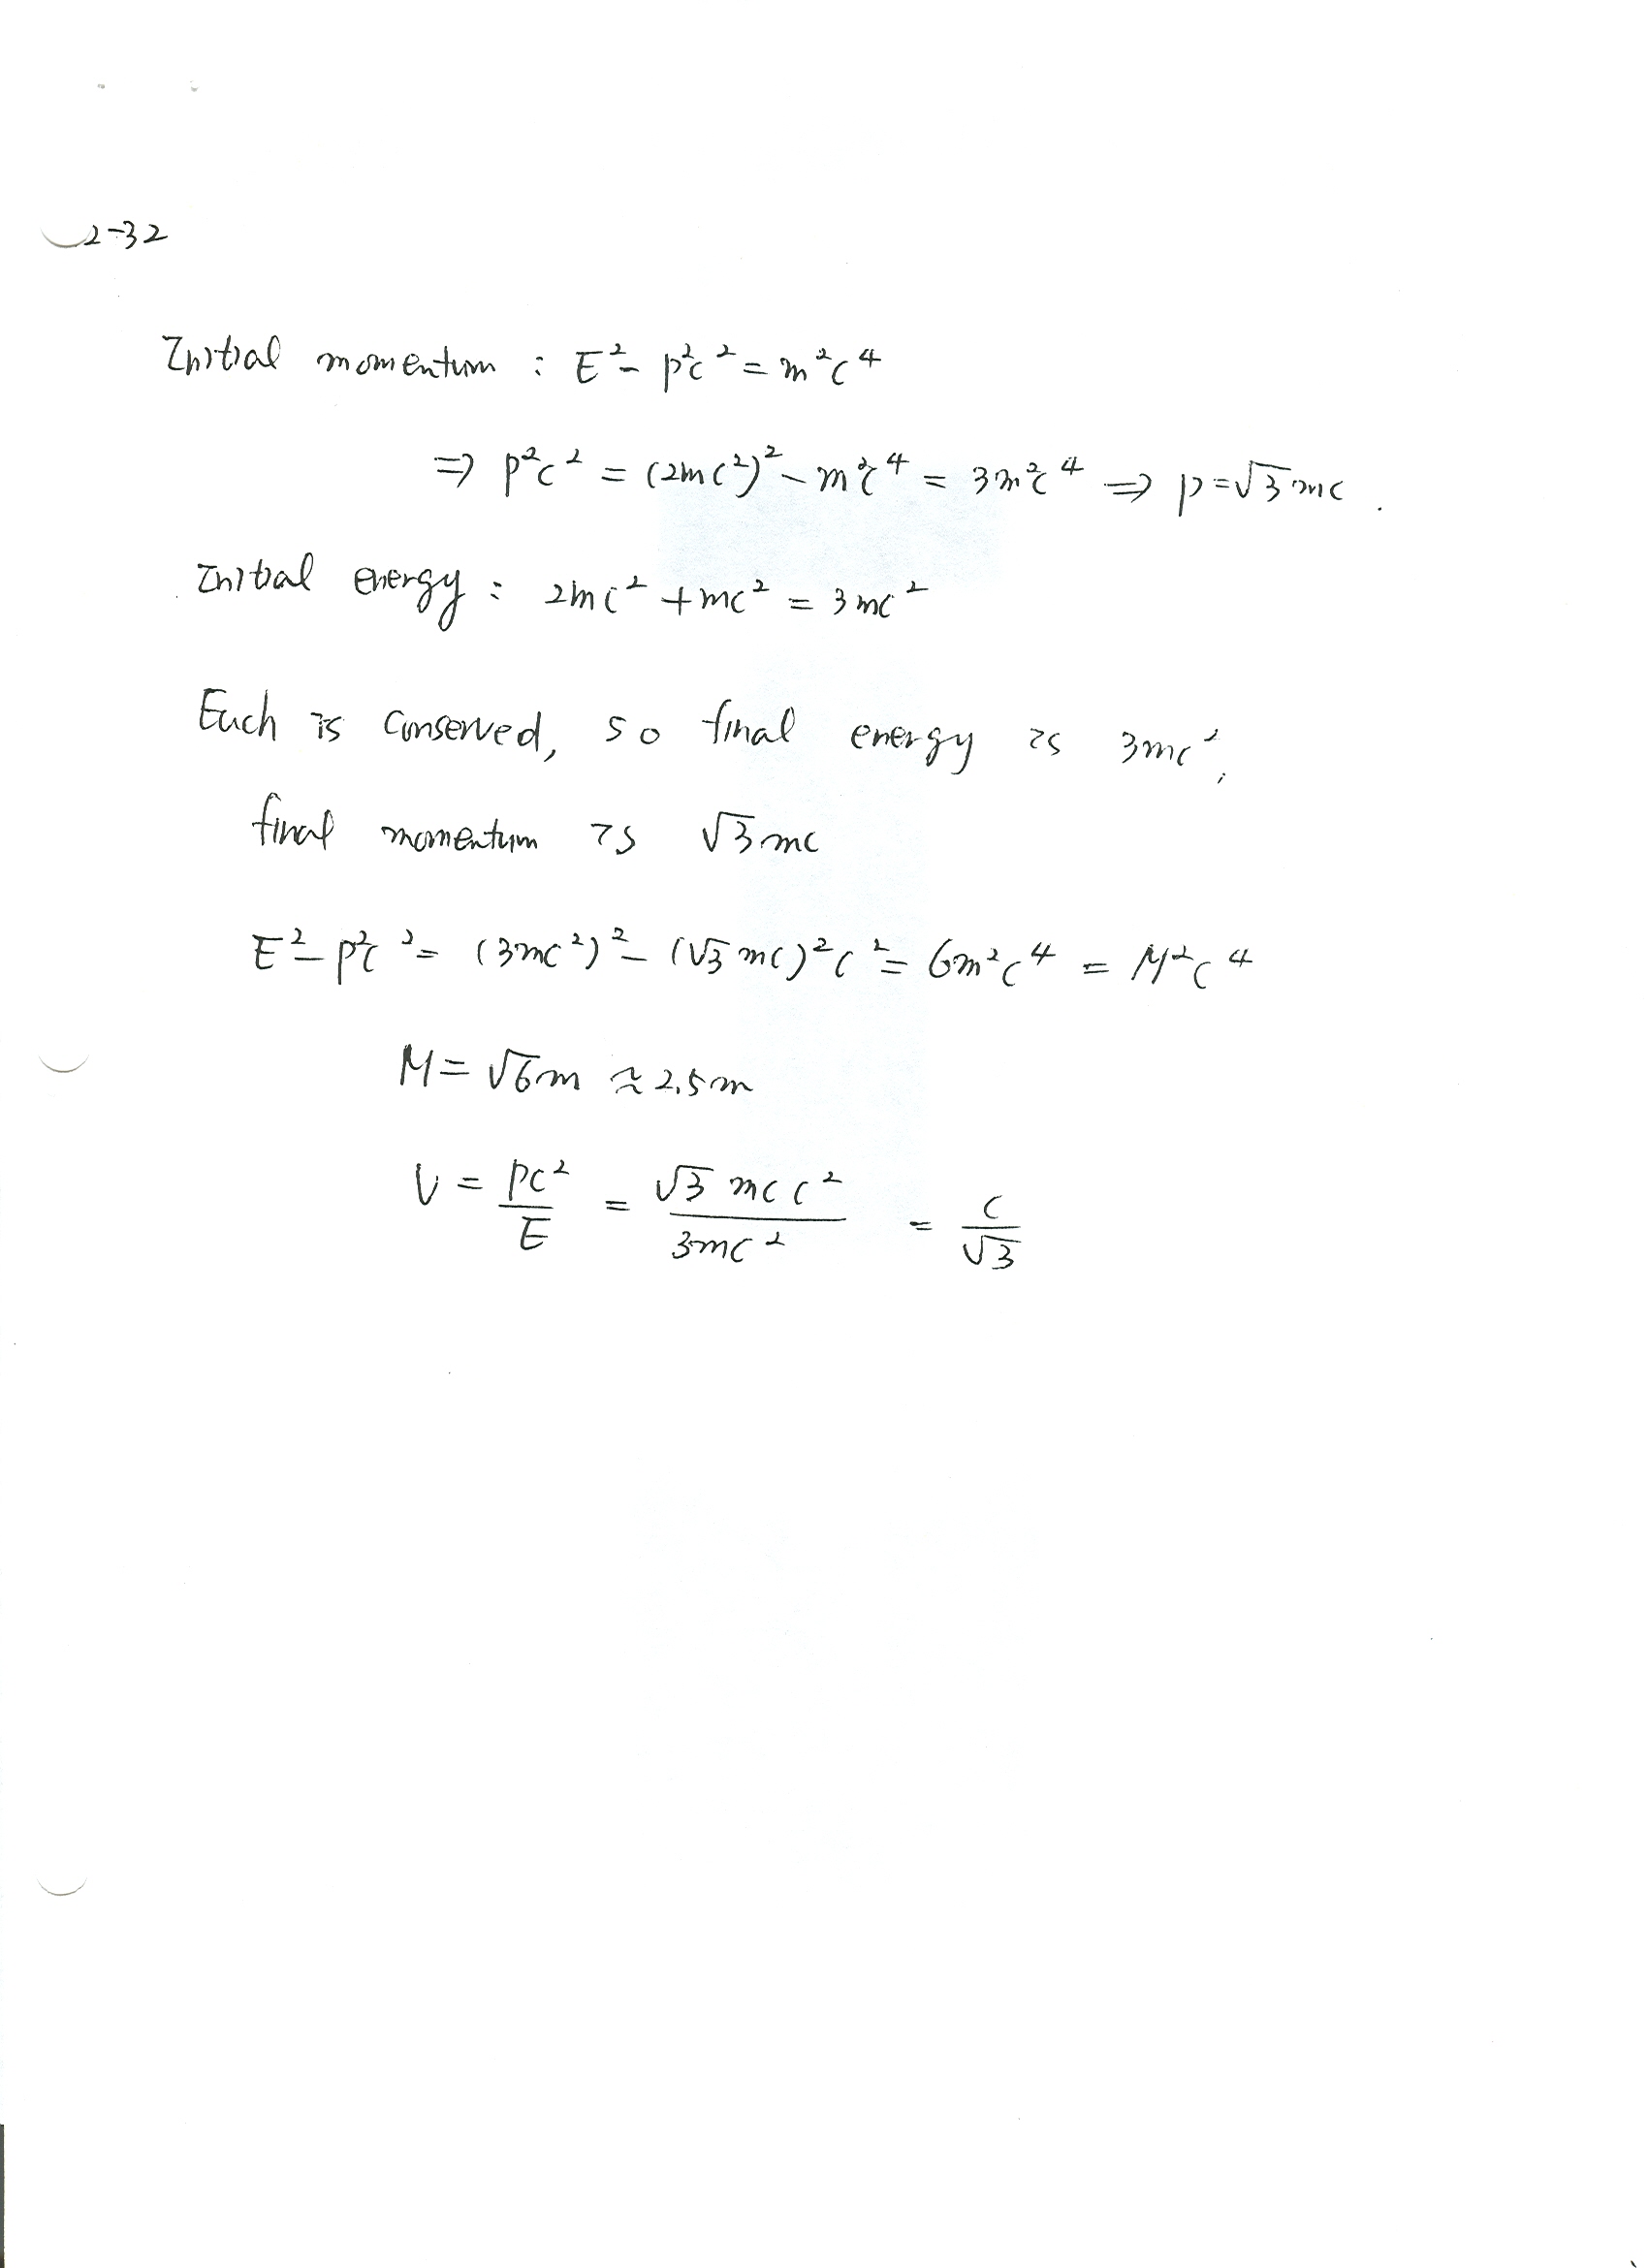 2-32
Initial momentum : E² - p²c² = m²c⁴
⇒ p²c² = (2mc²)² - m²c⁴ = 3m²c⁴ ⇒ p = √3 mc .
Initial energy : 2mc² + mc² = 3mc²
Each is conserved, so final energy is 3mc²,
final momentum is √3 mc
E² - p²c² = (3mc²)² - (√3 mc)²c² = 6m²c⁴ = M²c⁴
M = √6 m ≈ 2.5m
V = pc²/E = √3 mc c²/3mc² = c/√3